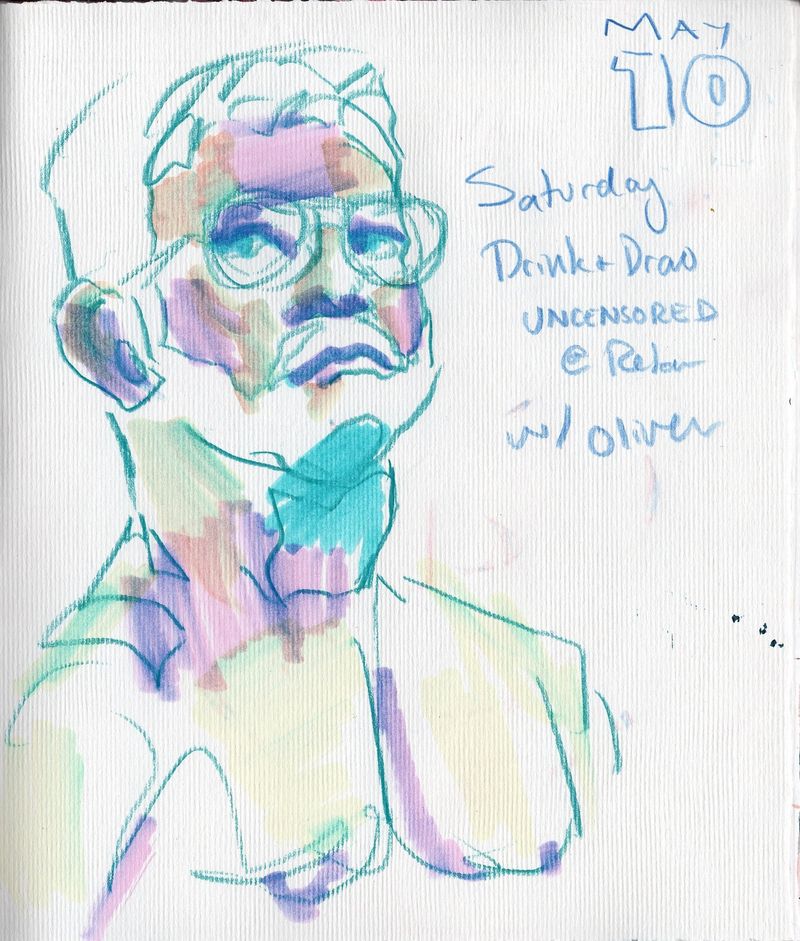 MAY
10
Saturday
Drink + Draw
UNCENSORED
@
w/ Oliver